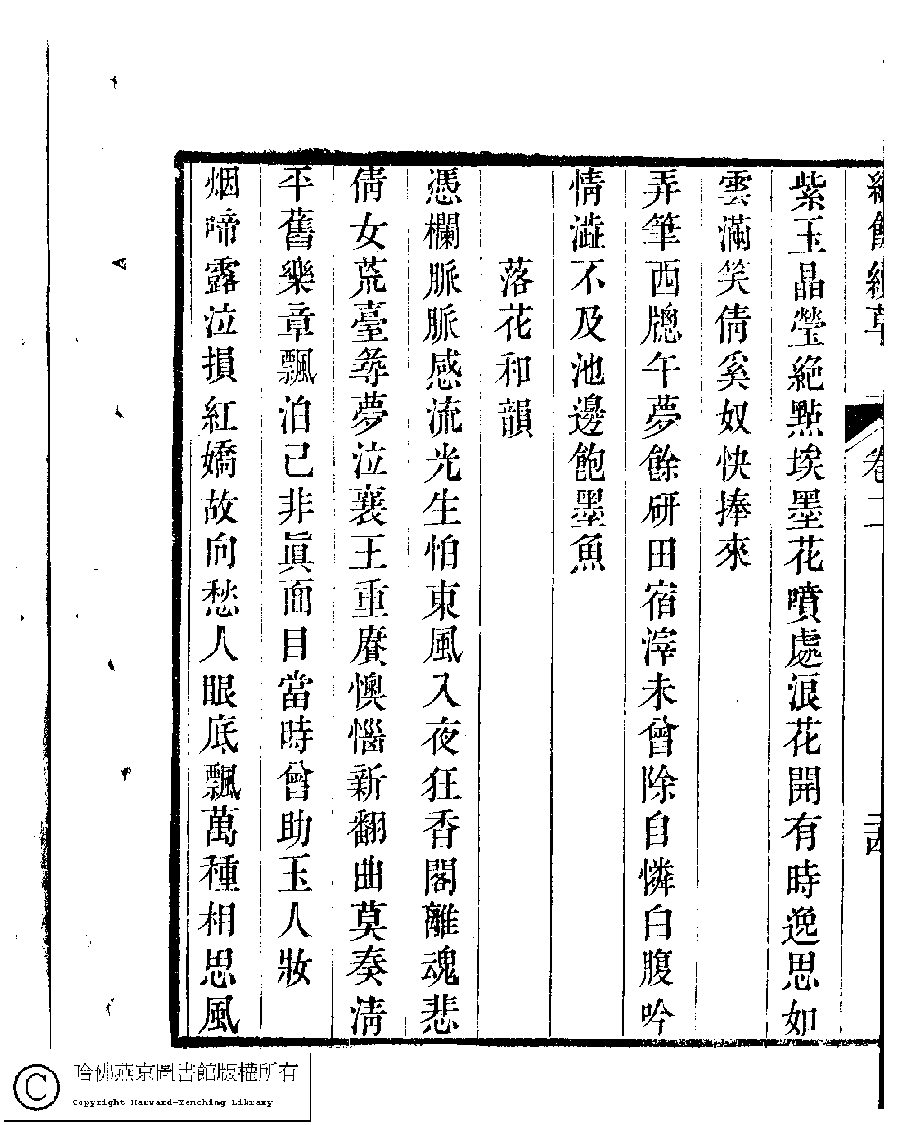 繡餘續草
卷二
紫玉晶瑩絶點埃墨花噴處浪花開有時逸思如
雲滿笑倩奚奴快捧來
弄筆西牕午夢餘研田宿滓未曾除自憐白腹吟
情澁不及池邊飽墨魚
落花和韻
憑欄脈脈感流光生怕東風入夜狂香閣離魂悲
倩女荒臺尋夢泣襄王重賡懊惱新翻曲莫奏淸
平舊樂章飄泊已非眞面目當時曾助玉人妝
烟啼露泣損紅嬌故向愁人眼底飄萬種相思風
哈佛燕京圖書館版權所有
Copyright Harvard-Yenching Library